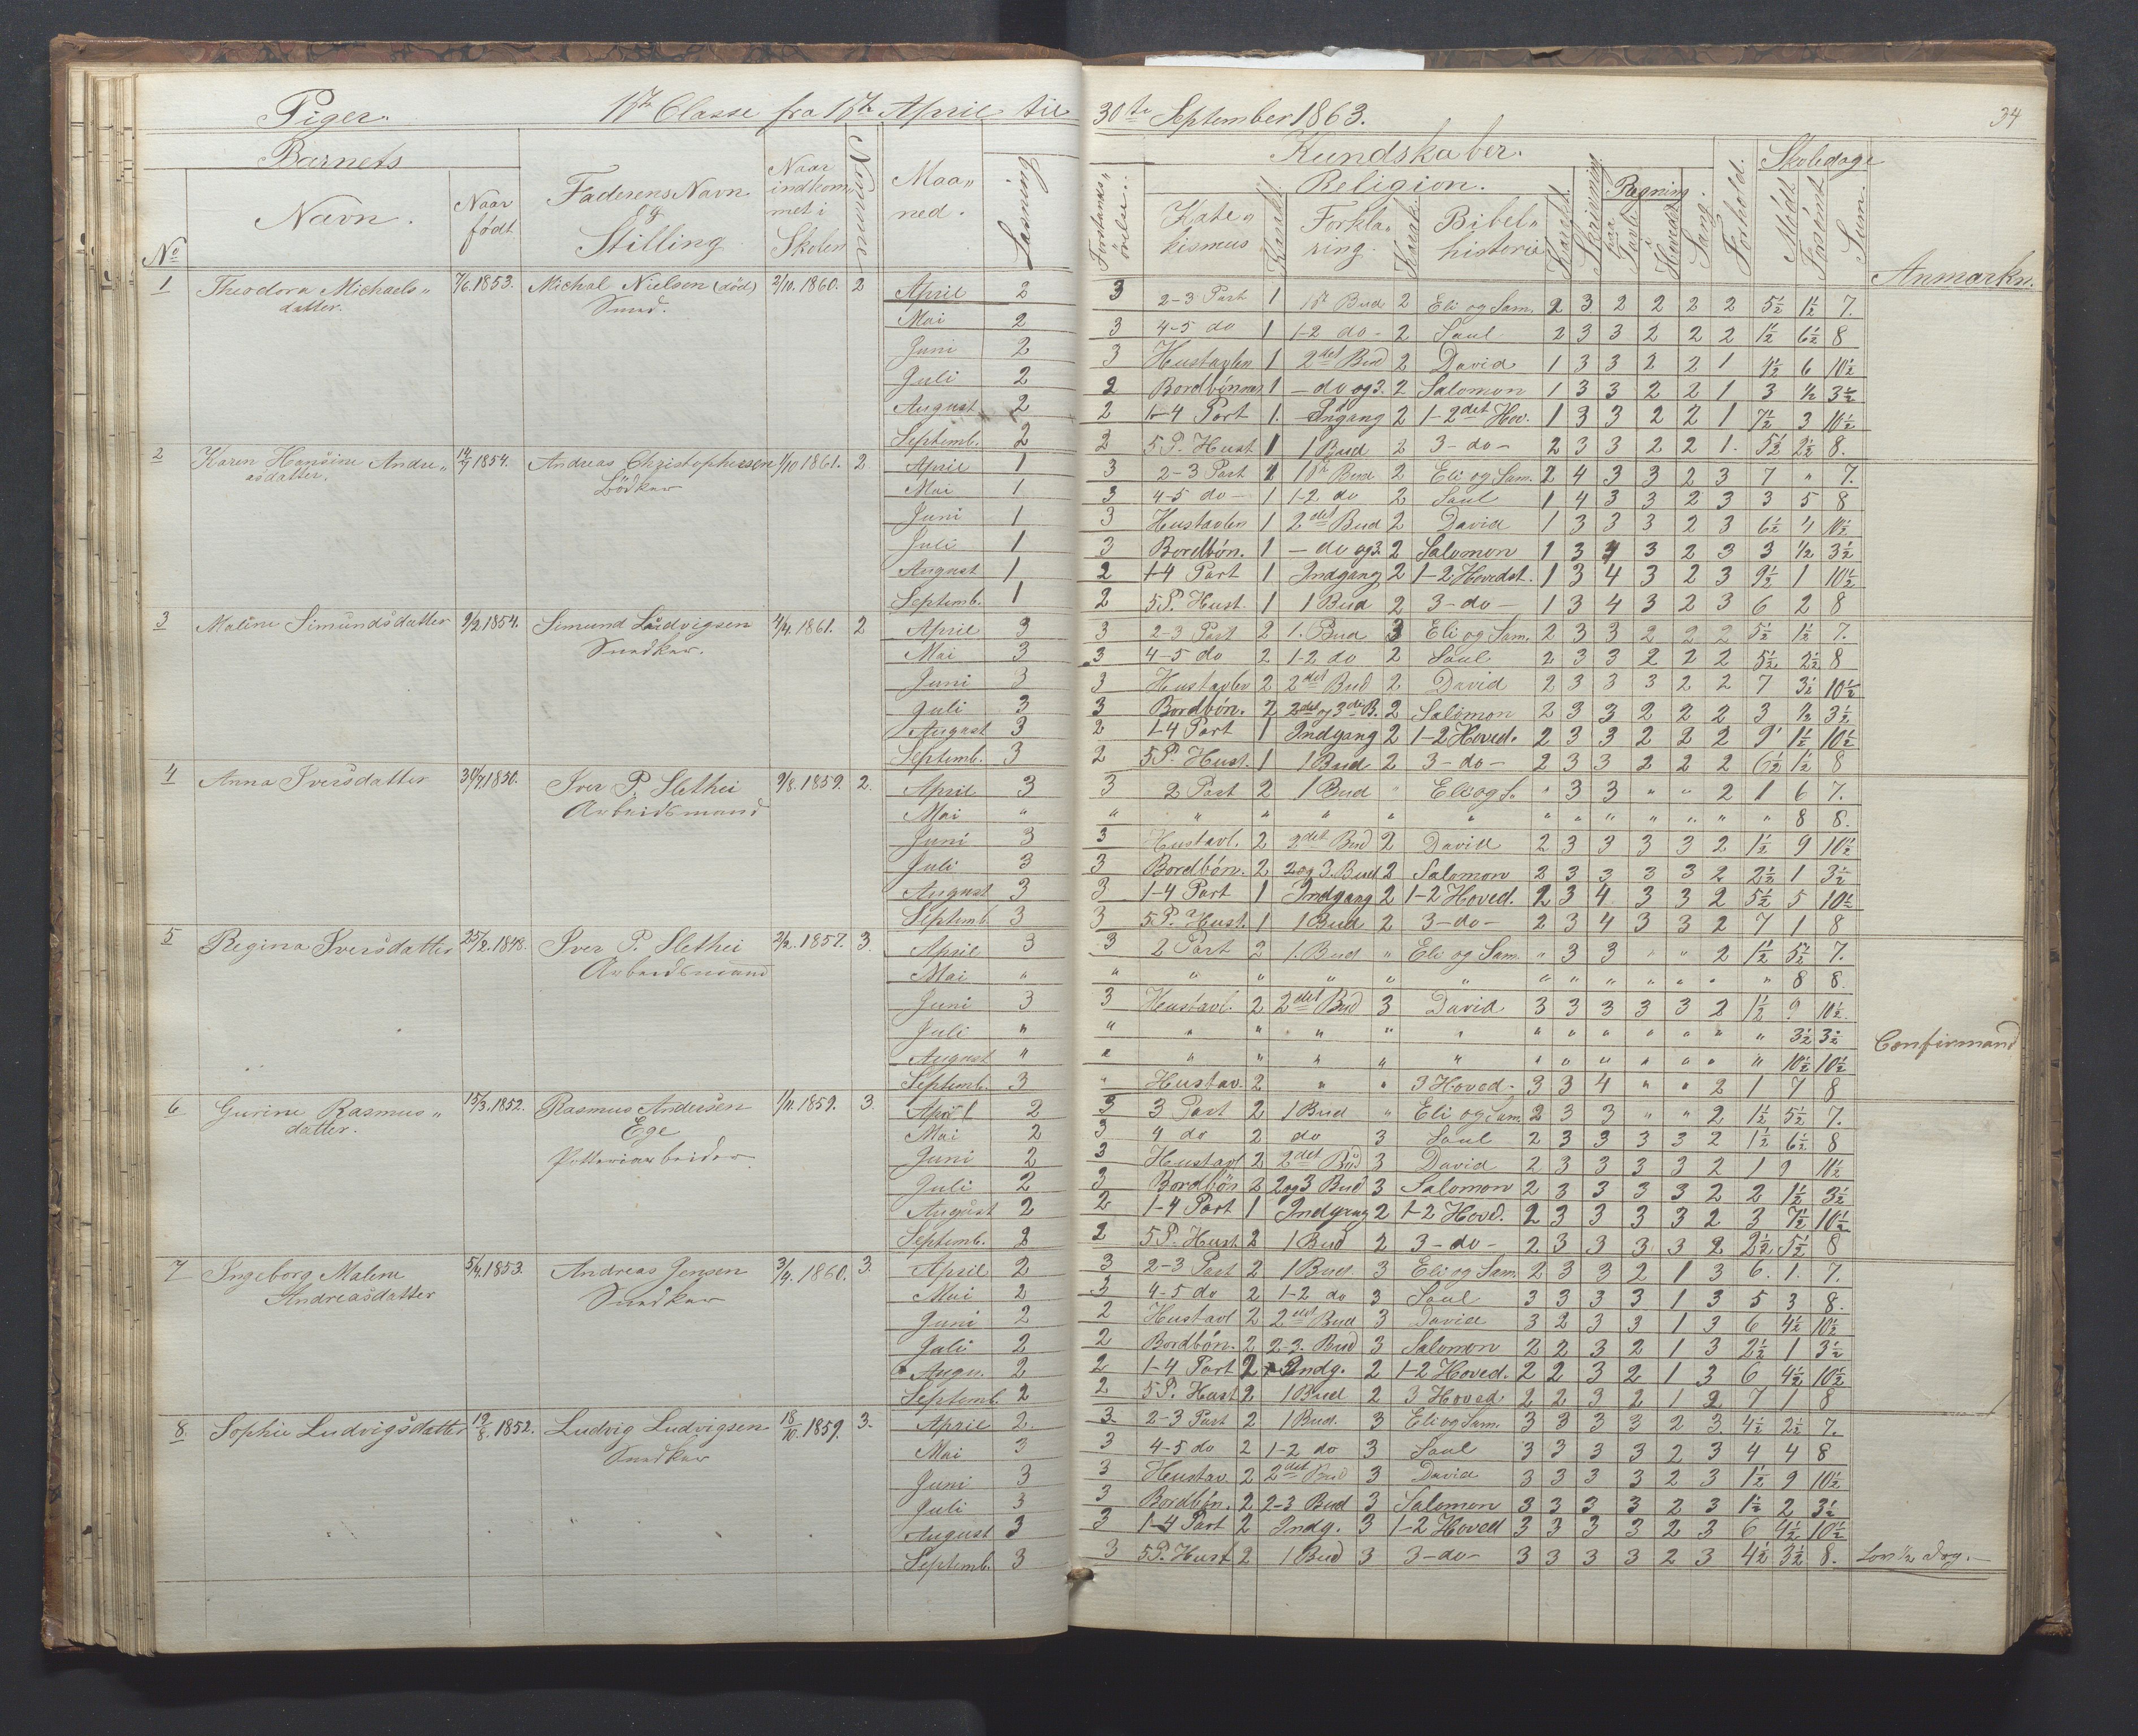 Piger. 1te Classe fra 1te April til 30te September 1863. 34
Barnets
Kundskaber.
Skoledage
No
Navn.
Naar født
Faderens Navn og Stilling
Naar indkommet i Skolen
Maaned.
Læsning
Forstandsøvelse.
Religion.
Katekismus
Karakt.
Forklaring.
Karakt.
Bibelhistorie
Karakt.
Skrivning
Regning
paa Tavle
Hovedet
Sang.
Forhold.
Mødt
Forsømt
Sum.
Anmærkn.
1 Theodora Michaelsdatter. 7/6.1853. Michal Nielsen (död) Smed. 2/10.1860. 2
April 2 3 2-3 Part 1 1te Bud 2 Eli og Sam. 2 3 2 2 2 2 5½ 1½ 7.
Mai 2 3 4-5 do 1 1-2 do- 2 Saul 2 3 3 2 2 2 1½ 6½ 8
Juni 2 3 Hustavlen 1 2det Bud 2 David 1 3 3 2 2 1 4½ 6 10½
Juli 2 2 Bordbönner 1 - do og 3. 2 Salomon 1 3 3 2 2 1 3 ½ 3½
August 2 2 1-4 Part 1. Indgang 2 1-2det Hov. 1 3 3 2 2 1 7½ 3 10½
Septemb. 2 2 5 P. Hust 1 1 Bud 2 3-do- 2 3 3 2 2 1. 5½ 2½ 8.
2 Karen Hansine Andreasdatter. 14/7 1854. Andreas Christophersen Bödker 1/10 1861. 2
April 1 3 2-3 Part 1 1te Bud 2 Eli og Sam. 2 4 3 3 2 3 7 " 7.
Mai 1 3 4-5 do- 1 1-2 do 2 Saul 1 4 3 3 2 3 3 5 8
Juni 1 3 Hustavlen 1 2det Bud 2 David 1 3 3 3 2 3 6½ 4 10½
Juli 1 3 Bordbön. 1 - do og 3. 2 Salomon 1 3 4 3 2 3 3 ½ 3½
August 1 2 1-4 Part 1 Indgang 2 1-2. Hovedst. 1 3 4 3 2 3 9½ 1 10½
Septemb. 1 2 5 P. Hust. 1 1 Bud 2 3-do- 1 3 4 3 2 3 6 2 8
3 Maline Simundsdatter 9/2 1854. Simund Ludvigsen Snedker. 4/4.1861. 2
April 3 3 2-3 Part 2 1. Bud 3 Eli og Sam. 2 3 3 2 2 2 5½ 1½ 7.
Mai 3 3 4-5 do 2 1-2 do 2 Saul 2 3 3 2 2 2 5½ 2½ 8
Juni 3 3 Hustavlen 2 2det Bud 2 David 2 3 3 3 2 2 7 3½ 10½
Juli 3 3 Bordbön. 2 2det og 3die B. 2 Salomon 2 3 3 2 2 2 3 ½ 3½
August 3 2 1-4 Part 1 Indgang 2 1-2 Hoved. 2 3 3 2 2 2 9 1½ 10½
Septemb. 3 2 5 P. Hust. 1 1 Bud 2 3-do- 2 3 3 2 2 2 6½ 1½ 8
4 Anna Iversdatter 30/7.1850. Iver P. Slethei Arbeidsmand 9/8.1859. 2.
April 3 3 2 Part 2 1 Bud " Eli og S. " 3 3 " " 2 1 6 7.
Mai " " " " " " " " " " " " " " 8 8.
Juni 3 3 Hustavl. 2 2det Bud 2 David 2 3 3 3 3 2 1½ 9 10½
Juli 3 3 Bordbön. 2 2 og 3. Bud 2 Salomon 2 3 3 3 3 2 2½ 1 3½
August 3 3 1-4 Part 1 Indgang 2 1-2 Hoved. 2 3 4 3 3 2 5½ 5 10½
Septemb. 3 3 5 P. Hust. 1 1 Bud 2 3-do- 2 3 4 3 3 2 7 1 8
5 Regina Iversdatter 25/2.1848. Iver P. Slethei Arbeidsmand 2/2.1857. 3.
April 3 3 2 Part 2 1. Bud " Eli og Sam. " 3 3 " " 2 1½ 5½ 7.
Mai " " " " " " " " " " " " " " 8 8.
Juni 3 3 Hustavl. 2 2det Bud 3 David 3 3 3 3 3 2 1½ 9. 10½.
Juli " " " " " " " " " " " " " " 3½ 3½ Confirmand
August " " " " " " " " " " " " " " 10½ 10½
Septemb. 3 " Hustav. 2 " " 3 Hoved- 3 3 4 " " 2 1 7 8
6 Gurine Rasmusdatter. 15/3.1852. Rasmus Andersen Ege Potteriarbeider. 1/11.1859. 3.
April 2 3 3 Part 2 1 Bud " Eli og Sam. 2 3 3 " " 2 1½ 5½ 7.
Mai 2 3 4 do 2 do 3 Saul 2 3 3 3 3 2 1½ 6½ 8
Juni 2 3 Hustavl 2 2det Bud 3 David 2 3 3 3 3 2 1 9 10½
Juli 2 3 Bordbön 2 2 og 3 Bud 3 Salomon 2 3 3 3 3 2 2 1½ 3½
August 2 2 1-4 Part 1 Indgang 2 1-2 Hovd. 2 3 3 3 3 2 3 7½ 10½
Septemb. 2 2 5 P. Hust. 2 1 Bud 2 3-do- 2 3 3 3 3 2 2½ 5½ 8
7 Ingeborg Maline Andreasdatter 5/4.1853. Andreas Jensen Snedker 3/4.1860. 3.
April 2 3 2-3 Part 2 1 Bud. 3 Eli og Sam. 2 3 3 2 1 3 6. 1. 7.
Mai 2 3 4-5 do 2 1-2 do 3 Saul 3 3 3 3 1 3 5 3 8.
Juni 2 2 Hustavl 2 2det Bud 3 David 3 2 3 3 1 3 6 4½ 10½
Juli 2 2 Bordbön. 2 2-3. Bud 3 Salomon 2 2 3 2 1 3 2½ 1 3½
Augu. 2 2 1-4 Part 2 Indg. 2 1-2 Hoved. 2 2 3 2 1 3 6 4½ 10½
Septemb. 2 2 5 P. Hust 2 1 Bud 2 3 Hoved 2 2 3 2 1 2 7 1 8
8. Sophie Ludvigsdatter 19/8.1852. Ludvig Ludvigsen Snedker 18/10.1859. 3.
April 2. 3. 2-3 Part 2 1 Bud. 3 Eli og Sam. 3 3 3 3 2 3. 4½ 2½ 7.
Mai 3 3 4-5 do 2 1-2 do 3 Saul 3 3 3 3 2 3 4 4 8
Juni 3 3 Hustav 2 2det Bud 3 David 3 3 3 3 2 3 1½ 9 10½
Juli 3 3 Bordbön. 2 2-3 Bud 3 Salomon 3 3 3 3 2 3 1½ 2 3½
August 3 3 1-4 Part 2 Indg. 3 1-2 Hoved 3 3 3 3 2 3 6 4½ 10½
Septemb. 3 3 5 P. Hust 2 1 Bud 3 3-do- 3 3 3 3 2 3 4½ 3½ 8. Lov ½ Dag.